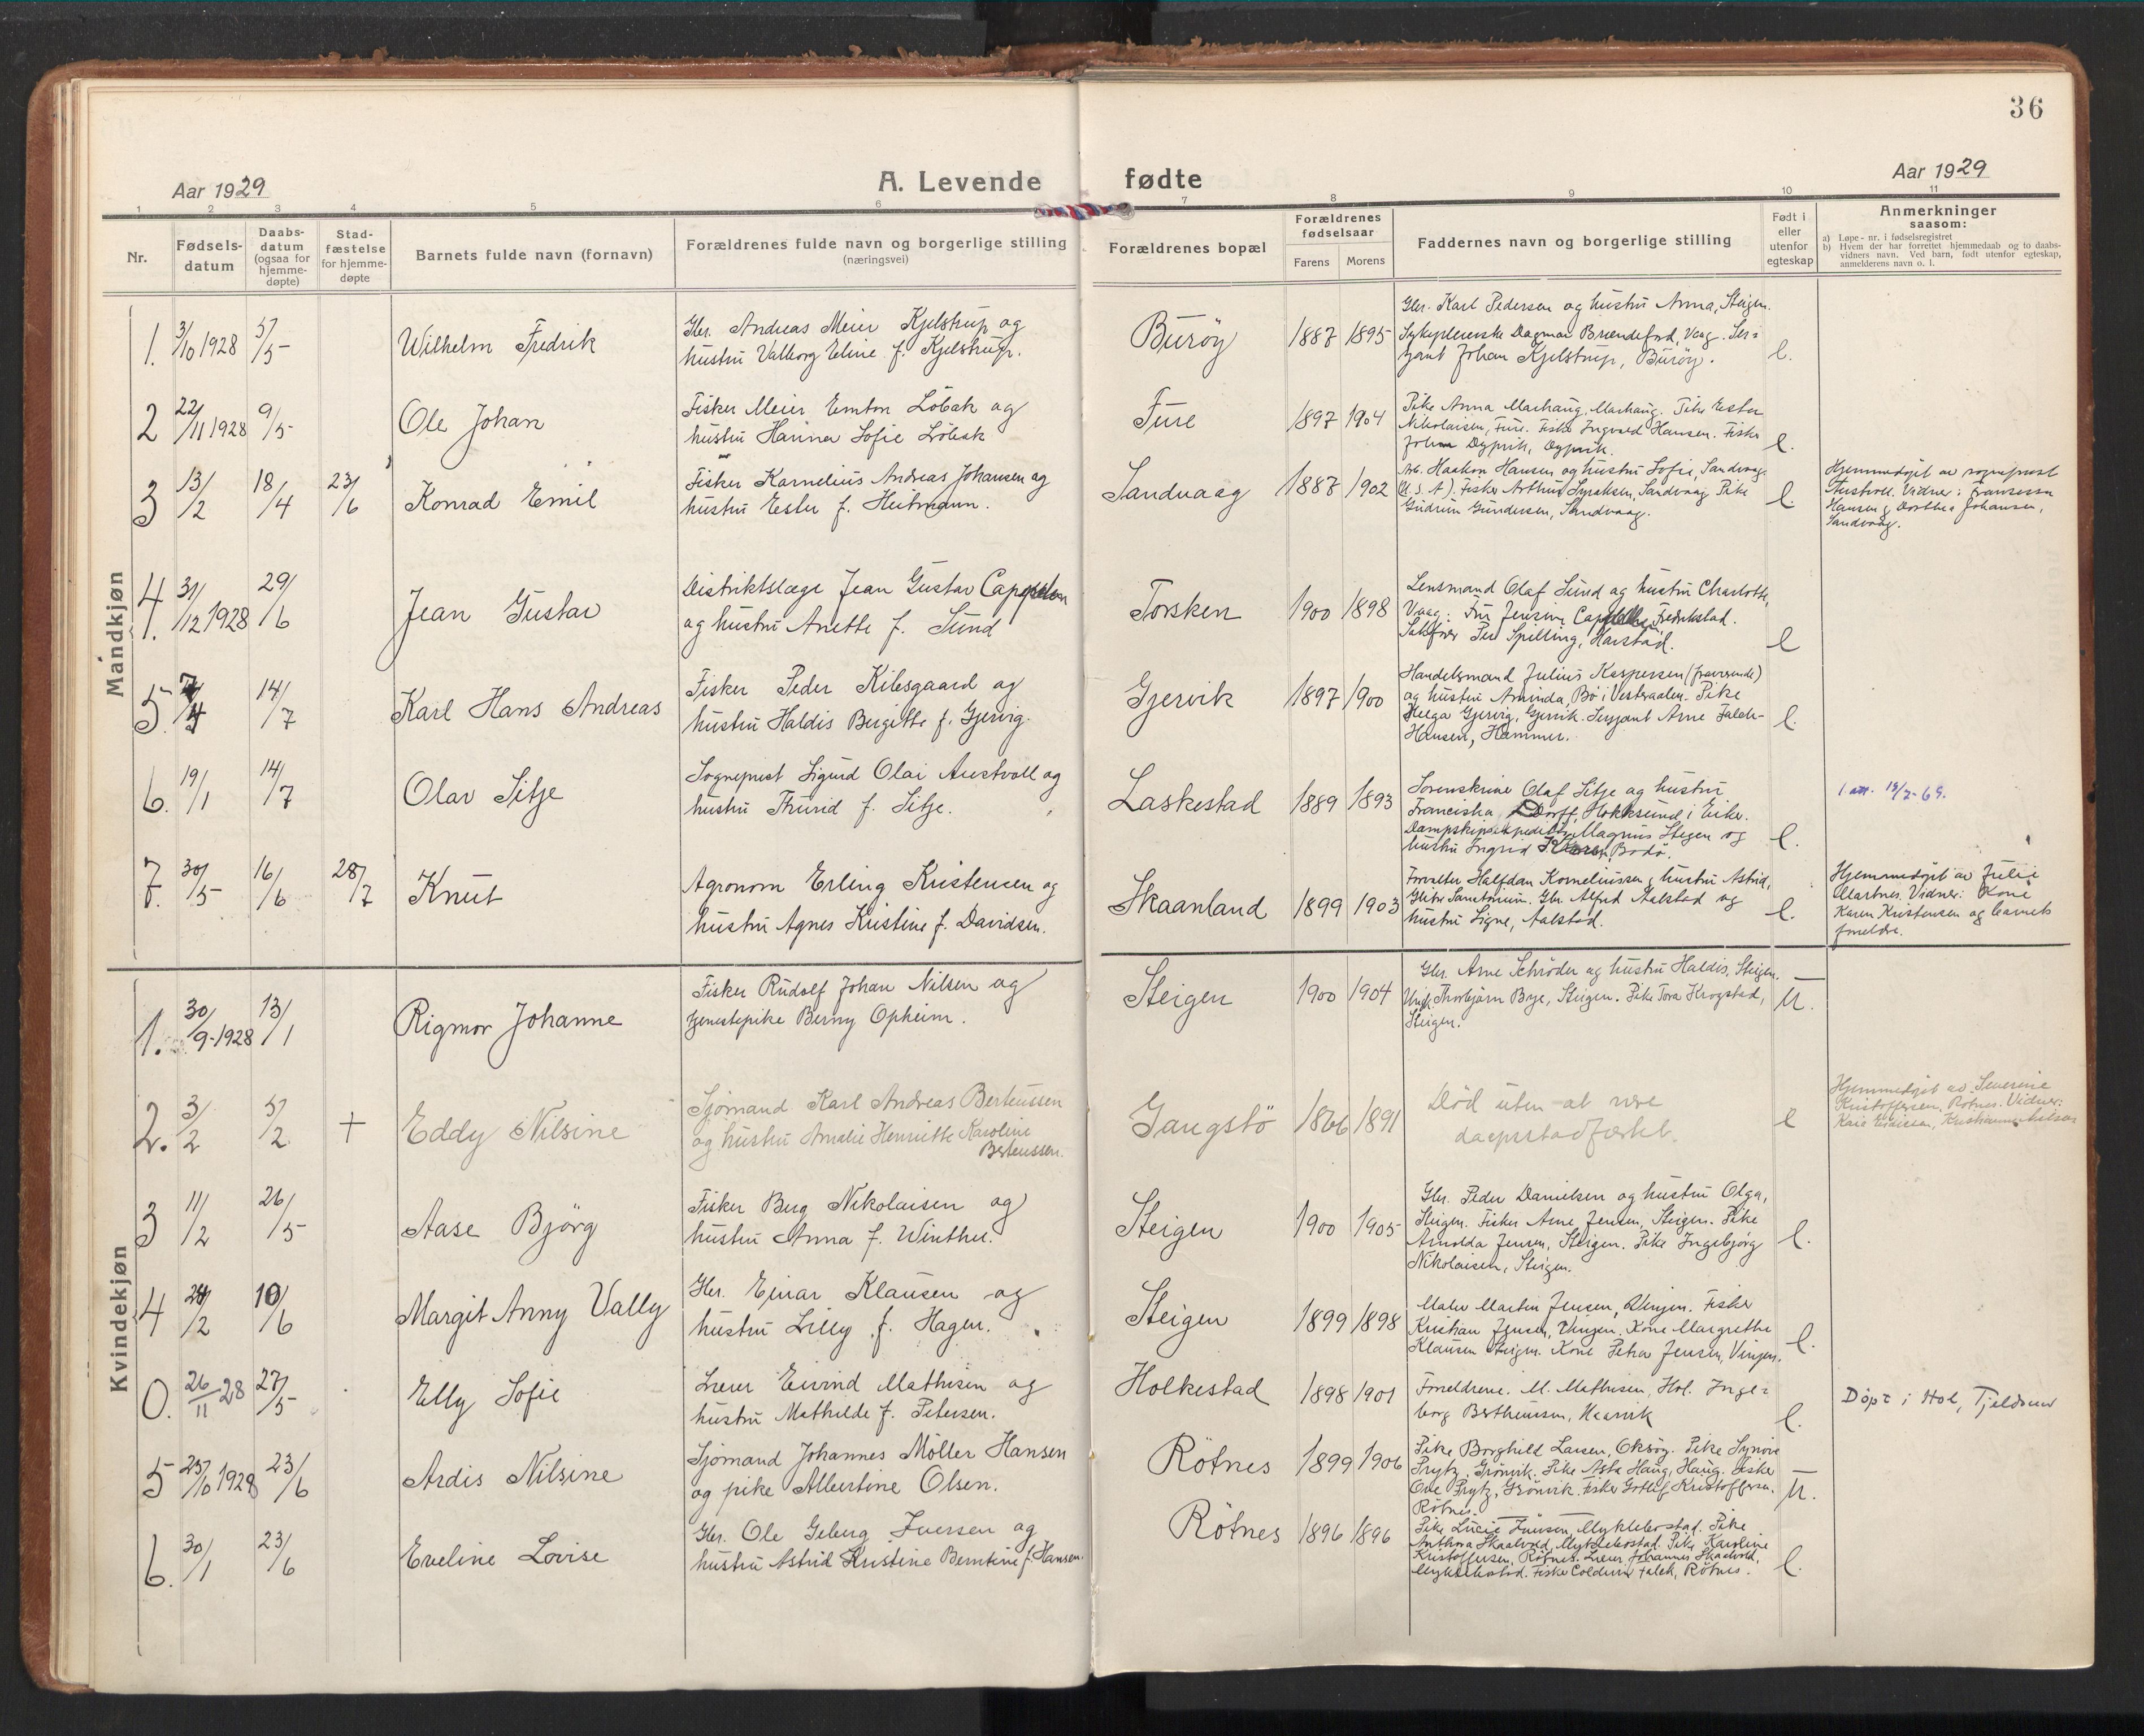 36
Aar 1929
A. Levende fødte
Aar 1929
1 2 3 4 5 6 7 8 9 10 11
Nr.
Fødsels-
datum
Daabs-
datum
(ogsaa for
hjemme-
døpte)
Stad-
fæstelse
for hjemme-
døpte
Barnets fulde navn (fornavn)
Forældrenes fulde navn og borgerlige stilling
(næringsvei)
Forældrenes bopæl
Forældrenes
fødselsaar
Farens Morens
Faddernes navn og borgerlige stilling
Født i
eller
utenfor
egteskap
Anmerkninger
saasom:
a) Løpe-nr. i fødselsregistret
b) Hvem der har forrettet hjemmedaab og to daabs-
vidners navn. Ved barn, født utenfor egteskap,
anmelderens navn o. l.
Mandkjøn
1. 3/10 1928 5/5 Wilhelm Fredrik
Gbr. Andreas Meier Kjelstrup og
hustru Valborg Eline f. Kjelstrup.
Burøy 1887 1895
Gbr. Karl Pedersen og hustru Anna, Steigen.
Sykepleierske Dagmar Brændeford, Vaag. Ser=
gent Johan Kjelstrup, Burøy. e.
2 22/11 1928 9/5 Ole Johan
Fisker Meier Emton Löbak og
hustru Hanna Sofie Löbak
Fure 1897 1904
Pike Anna Marhaug, Marhaug. Pike Ester
Nikolaisen, Fure. Fisker Ingvald Hansen. Fisker
Johan Dypvik, Dypvik. e.
3 13/2 18/4 23/6 Konrad Emil
Fisker Kornelius Andreas Johansen og
hustru Ester f. Heitmann.
Sandvaag 1887 1902
Arb. Haakon Hansen og hustru Sofie, Sandvaag
(U.S.A). Fisker Arthur Syraksen, Sandvaag Pike
Gudrun Gundersen, Sandvaag. e.
Hjemmedöpt av sogneprest
Austvoll. Vidner: Fransiska
Hansen g Dorthea Johansen,
Sandvaag.
4 31/12 1928 29/6 Jean Gustav
Distriktslæge Jean Gustav Cappelen
og hustru Anette f. Sund
Torsken 1900 1898
Lensmand Olaf Sund og hustru Charlotte,
Vaag. Fru Jensine Cappelen, Fredrikstad.
Sakfører Per Spilling, Harstad. e
5. 7/4 14/7 Karl Hans Andreas
Fisker Peder Kilesgaard og
hustru Haldis Bergitte f. Gjervig.
Gjervik 1897 1900
Handelsmand Julius Kaspersen (fraværende)
og hustru Aminda, Bö i Vesteraalen. Pike
Helga Gjervig, Gjervik. Sersjant Arne Falch-
Hansen, Hammer. e.
6. 19/1 14/7 Olav Sitje
Sogneprest Sigurd Olai Austvoll og
hustru Thurid f. Sitje.
Laskestad 1889 1893
Sorenskriver Olaf Sitje og hustru
Franciska Dorff, Hokksund i Eiker.
Dampskipsekspeditör Magnus Steigen og
hustru Ingrid Karen, Bodö. e.
1 att. 19/7-69.
7. 30/5 16/6 28/7 Knut
Agronom Erling Kristensen og
hustru Agnes Kristine f. Davidsen.
Skaanland 1899 1903
Forvalter Halfdan Korneliussen g hustru Astrid,
Glitre Sanatorium. Gbr. Alfred Aalstad og
hustru Signe, Aalstad. e.
Hjemmedöpt av Julie
Martnes. Vidner: Kone
Karen Kristensen og barnets
foreldre.
Kvindekjøn
1. 30/9-1928 13/1 Rigmor Johanne
Fisker Rudolf Johan Nilsen og
tjenestepike Berny Opheim.
Steigen 1900 1904
Gbr. Arne Schröder og hustru Haldis, Steigen.
Thorbjörn Bye, Steigen. Pike Tora Krogstad,
Steigen. U.
2. 3/2 5/2 + Eddy Nilsine
Sjömand Karl Andreas Berteussen
og hustru Amalie Henriette Karoline
Berteussen.
Gangstö 1866 1891
Död uten at være
daapsstadfæstet. e
Hjemmedöpt av Severine
Kristoffersen, Rotnes. Vidner:
3 11/2 26/5 Aase Bjørg
Fisker Berg Nikolaisen og
hustru Anna f. Winther.
Steigen 1900 1905
Gbr. Peder Danielsen og hustru Olga,
Steigen. Fisker Arne Jensen, Steigen. Pike
Arnolda Jensen, Steigen. Pike Ingebjørg
Nikolaisen, Steigen. e.
4 24/2 10/6 Margit Anny Vally
Gbr. Ejnar Klausen og
hustru Lilly f. Hagen.
Steigen 1899 1898
Maler Martin Jensen, Vinjen. Fisker
Kristian Jensen, Vinjen. Kone Margrethe
Klausen Steigen. Kone Petra Jensen, Vinjen. e.
0. 26/11 28 27/5 Elly Sofie
Lærer Eivind Mathisen og
hustru Mathilde f. Petersen.
Holkestad 1898 1901
Foreldrene. M. Mathisen, Hol. Inge=
borg Bertheussen, Narvik e.
Döpt i Hol, Tjeldsund
5 25/10 1928 23/6 Ardis Nilsine
Sjömand Johannes Möller Hansen
og pike Albertine Olsen.
Rötnes 1899 1906
Pike Borghild Larsen, Oksöy. Pike Synöve
Prytz, Grönvik. Pike Asta Haug, Haug. Fisker
Ove Prytz, Grönvik. Fisker Gotlif Kristoffersen,
Rötnes. U.
6. 30/1 23/6 Eveline Lovise
Gbr. Ole Geberg Iversen og
hustru Astrid Kristine Berntine f. Hansen.
Rötnes 1896 1896
Pike Lucie Jansen, Myklebostad. Pike
Anthora Skaalvold, Myklebostad. Pike Karoline
Kristoffersen, Rötnes. Lærer Johannes Skaalvold,
Myklebostad. Fisker Falch, Rötnes. e.